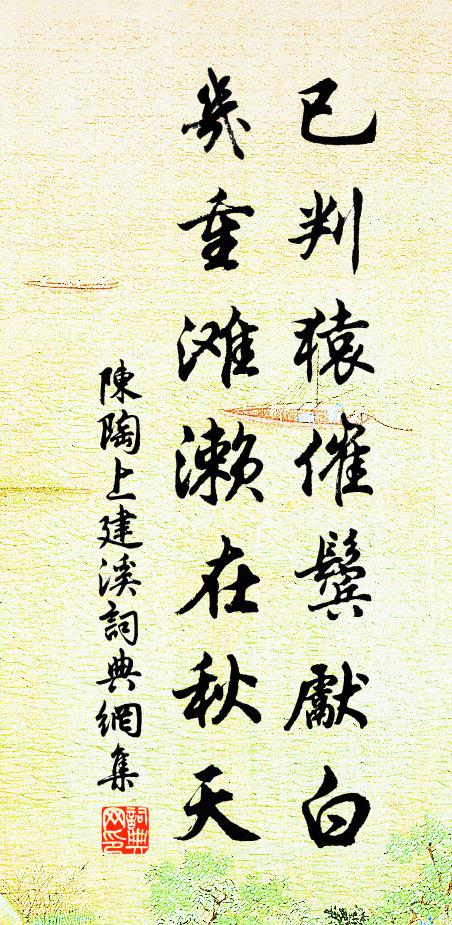 已判猿催鬓獻白
幾重滩濑在秋天
陳陶上建溪詞典網集
詞典网印